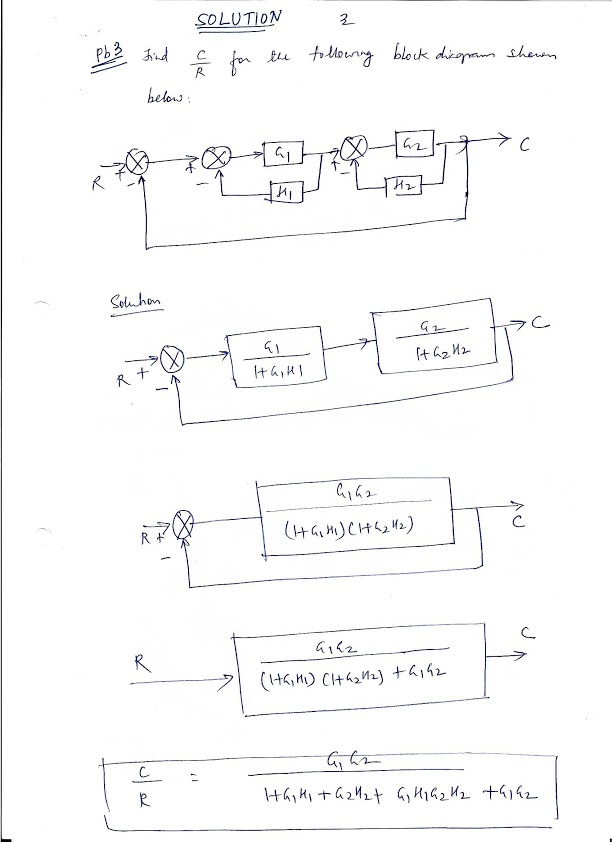 SOLUTION 3
Pb3 Find C/R for the following block diagram shown
below:
R + - + - G1 + - G2 C
H1 H2
Solution
R + - G1 / 1+G1H1 G2 / 1+G2H2 C
R + - G1G2 / (1+G1H1)(1+G2H2) C
R G1G2 / (1+G1H1)(1+G2H2)+G1G2 C
C/R = G1G2 / 1+G1H1+G2H2+G1H1G2H2+G1G2